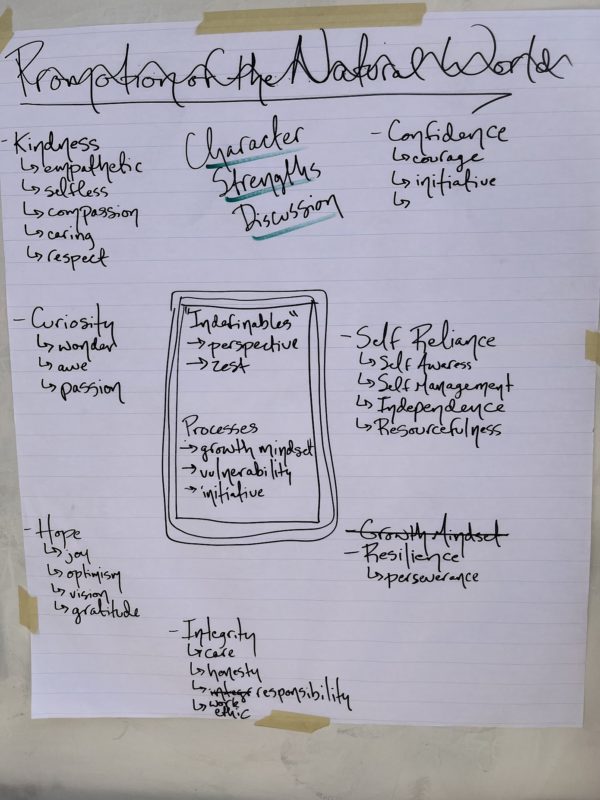 Promotion of the Natural World
Character
Strengths
Discussion
- Kindness
↳ empathetic
↳ selfless
↳ compassion
↳ caring
↳ respect
- Confidence
↳ courage
↳ initiative
↳
- Curiosity
↳ wonder
↳ awe
↳ passion
"Indefinables"
→ perspective
→ zest
Processes
→ growth mindset
→ vulnerability
→ initiative
- Self Reliance
↳ Self Awaress
↳ Self Management
↳ Independence
↳ Resourcefulness
- Hope
↳ joy
↳ optimism
↳ vision
↳ gratitude
- Growth Mindset
- Resilience
↳ perseverance
- Integrity
↳ care
↳ honesty
↳ integr responsibility
↳ work
ethic